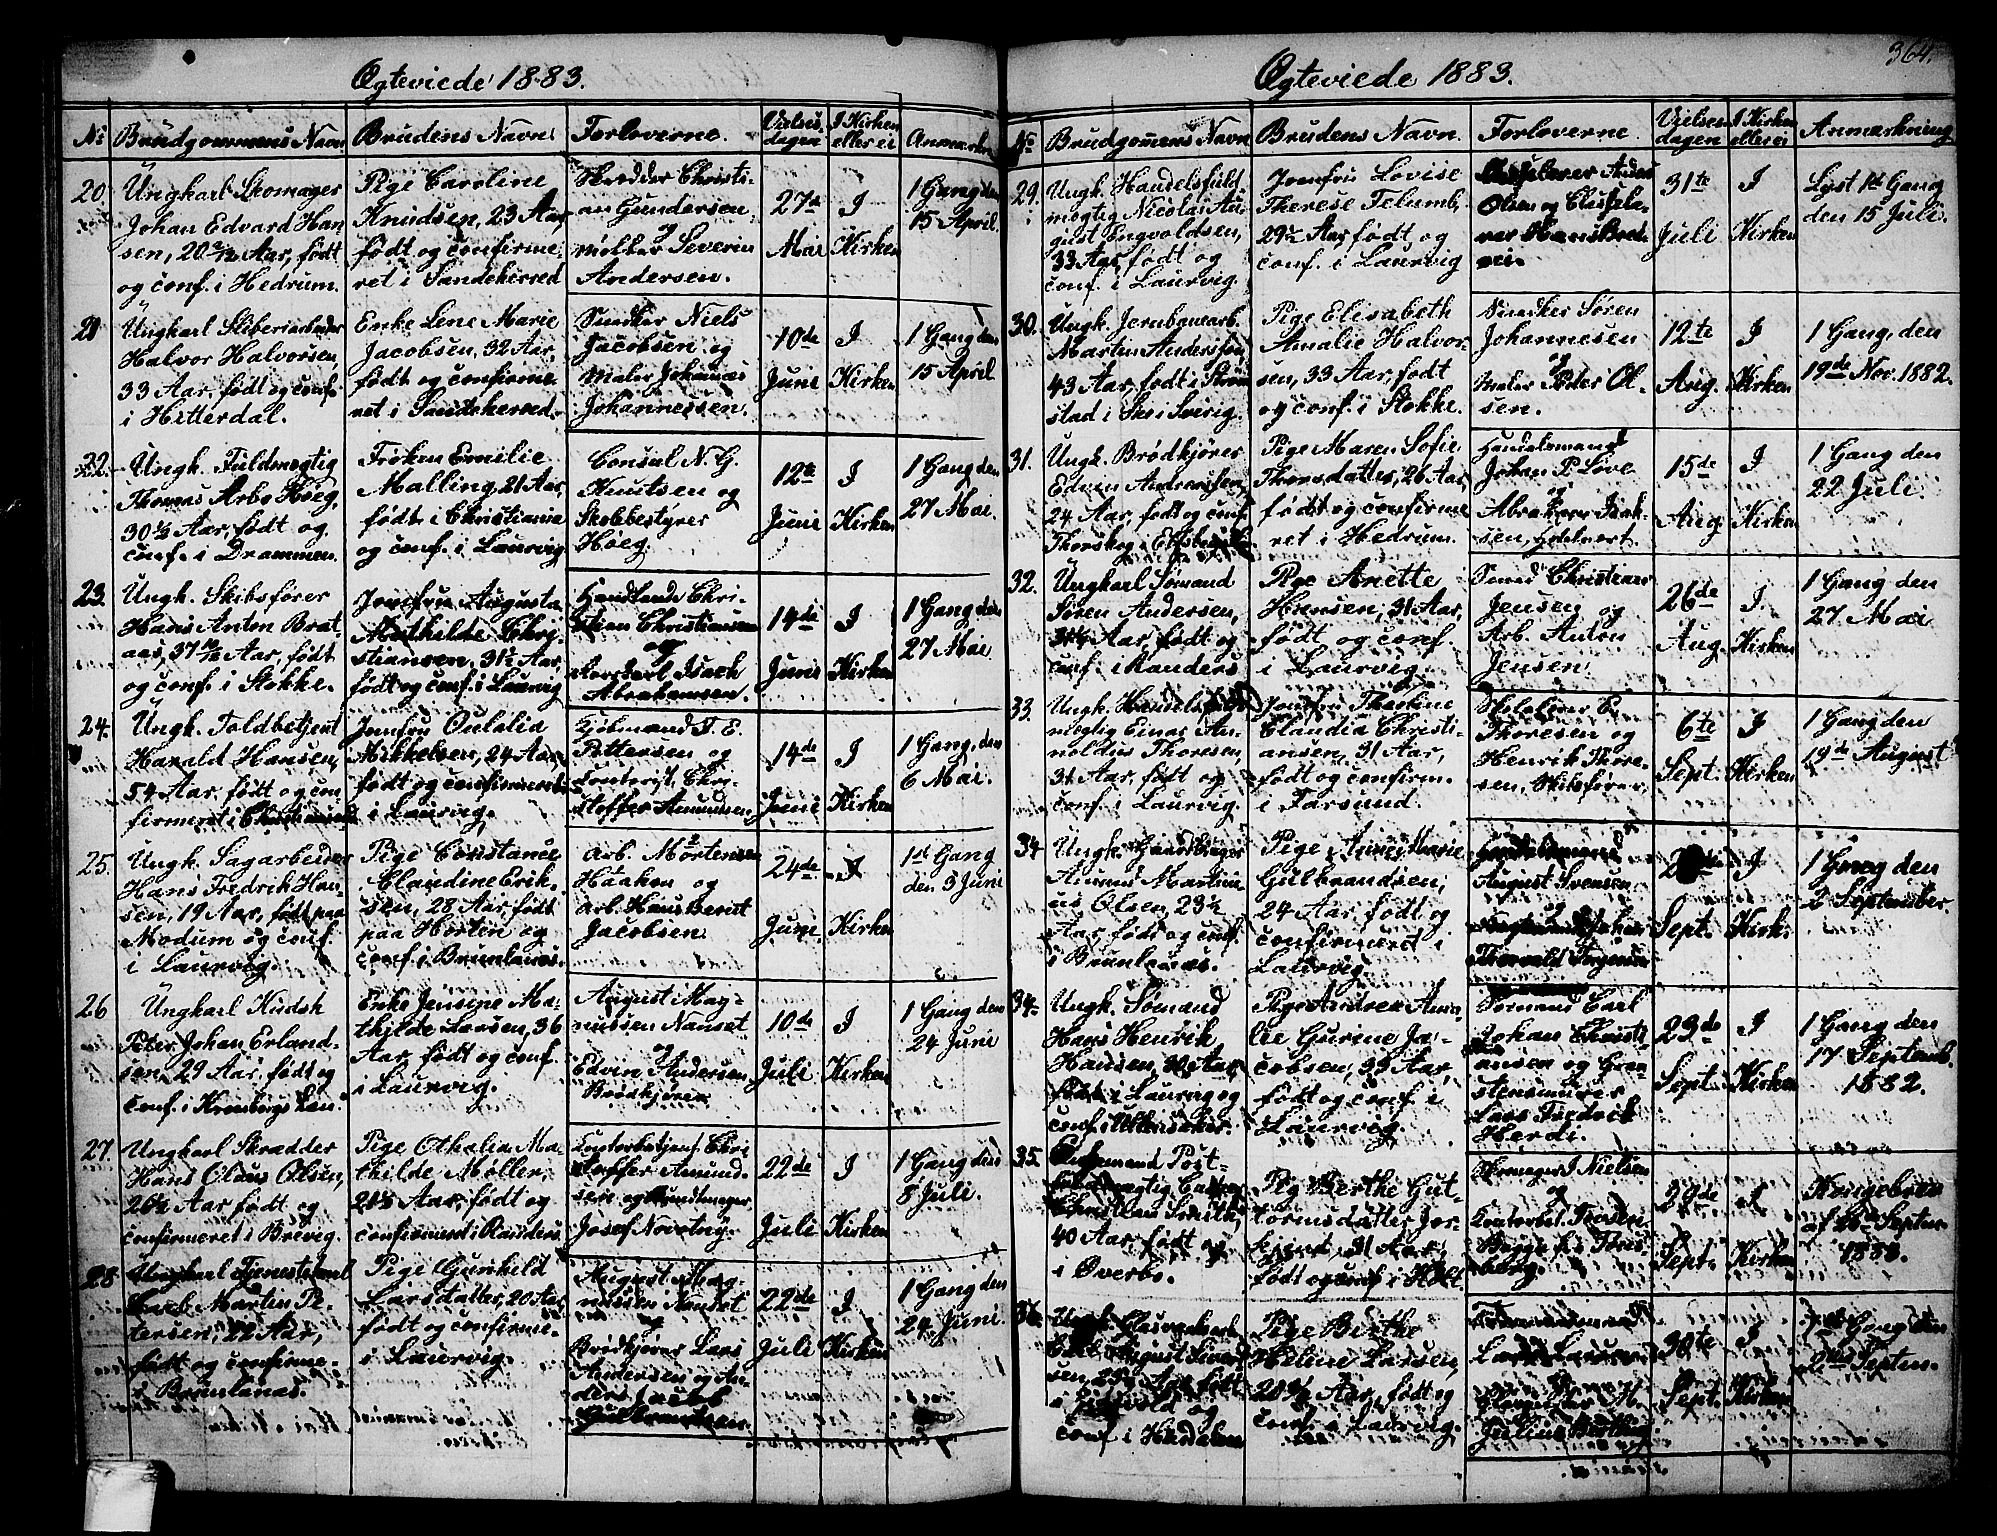 Ægteviede 1883.
No
Brudgommens Navn
Brudens Navn
Forloverne
Vielses
dagen
I Kirken
eller ei
Anmærkn
20.
Ungkarl Skomager
Johan Edvard Han
sen, 20 Aar, født
og conf. i Hedrum.
Pige Caroline
Knudsen, 23 Aar,
født og confirme
ret i Sandeherred
Skrædder Christi-
an Gundersen
og
Møller Severin
Andersen.
27de
Mai
I
Kirken
1 Gang den
15 April.
21
Ungkarl Støberiarbeider
Halvor Halvorsen,
33 Aar, født og conf.
i Hitterdal.
Enke Lene Marie
Jacobsen, 32 Aar,
født og confirme
ret i Sandeherred.
Snedker Niels
Jacobsen og
Maler Johannes
Johannessen.
10de
Juni
I
Kirken
1 Gang den
15 April
22.
Ungk. Fuldmægtig
Thomas Arbo Høeg,
30½ Aar, født og
conf. i Drammen.
Frøken Emilie
Malling, 21 Aar,
født i Christiania
og conf. i Laurvig
Consul N. G.
Knutsen og
Skolebestyrer
Høeg.
12te
Juni
I
Kirken
1 Gang den
27 Mai.
23.
Ungk. Skibsfører
Hans Anton Brat-
aas, 37 Aar, født
og conf. i Stokke.
Jomfru Augusta
Mathilde Chri
stiansen, 31½ Aar,
født og conf. i Laurvig
Chri-
stian Christiansen
og
Isach
Abrahamsen.
14de
Juni
I
Kirken
1 Gang den
27 Mai.
24.
Ungk. Toldbetjent
Harald Hansen,
54 Aar, født og con
firmeret i Christiansund
Jomfru Oulalia
Mikkelsen, 24 Aar,
født og confirmeret
i Laurvig.
Kjøbmand T. E.
Pettersen og
Kontorist Chri-
stoffer Amundsen,
14de
Juni
I
Kirken
1 Gang, den
6 Mai.
25.
Ungk. Sagarbeider
Hans Fredrik Han
sen, 19 Aar, født paa
Modum og conf.
i Laurvig.
Pige Constance
Claudine Erik-
sen, 28 Aar, født
paa Horten og
conf. i Brunlanæs.
Arb. Morten
Haaken og
Arb. Hans Berut
Jacobsen.
24de
Juni
I
Kirken
1st Gang
den 3 Juni
26
Ungkarl Kudsk
Peter Johan Erland-
sen, 29 Aar, født og
conf. i Kronbergs Len.
Enke Jensine Ma-
thilde Larsen, 36
Aar, født og conf.
i Laurvig.
August Mag-
nussen Nanset
og
Edvin Andersen
Brødkjører
10de
Juli
I
Kirken
1 Gang den
24 Juni
27.
Ungkarl Skrædder
Hans Olaus Olsen,
26½ Aar født og
confirmeret i Brevig.
Pige Othalia Ma-
thilde Møller,
21½ Aar, født og
confirmeret i Randers
Kontorbetjent Chri
stoffer Amund-
sen og
Josef Novotny.
22de
Juli
I
Kirken
1 Gang den
8 Juli.
28
Ungkarl Tjenestekarl
Carl Martin Pe-
tersen, 22 Aar,
født og confirme-
i Brunlanæs.
Pige Gunhild
Larsdatter, 20 Aar,
født og confirme-
i Laurvig.
August Mag-
nussen Nanset
og
Brødkjører Lars
Andersen og An-
ders Jacob
Gulbrandsen.
22de
Juli
I
Kirken
1 Gang den
24 Juni
Ægteviede 1883.
364.
No
Brudgomens Navn
Brudens Navn.
Forloverne
Vielses
dagen
I Kirken
eller ei
Anmærkning
29.
Ungk. Handelsfuld
mægtig Nicolai Au-
gust Engvoldsen,
33 Aar, født og
conf. i Laurvig.
Jomfru Lovise
Therese Telumb,
29½ Aar, født og
conf. i Laurvig
Anders
Olsen og
Hans
31te
Juli
I
Kirken
Lyst 1st Gang
den 15 Juli.
30.
Ungk. Jernbanearb.
Martin Andersson,
43 Aar, født i Strøm
stad i Sverig.
Pige Elisabeth
Amalie Halvor-
sen, 33 Aar, født
og conf. i Stokke.
Snedker Søren
Johannesen
og
Maler Peter Ol-
sen.
12te
Aug.
I
Kirken
1 Gang, den
19de Nov. 1882.
31.
Ungk. Brødkjører
Edvin Andreassen,
24 Aar, født og conf.
Thorskog
Pige Maren Sofie
Thorsdatter, 26 Aar,
født og confirme
ret i Hedrum.
Handelsmand
Johan P. Løve
og
Abraham Isak-
sen,
15de
Aug
I
Kirken
1 Gang den
22 Juli.
32.
Ungkarl Sømand
Søren Andersen,
31½ Aar, født og
conf. i Randers
Pige Anette
Hansen, 31 Aar,
født og conf.
i Laurvig.
Christian
Jensen og
Arb. Anton
Jensen.
26de
Aug.
I
Kirken
1 Gang den
27 Mai
33.
Ungk. Handelsfuld
mægtig Einar Ar-
noldius Thoresen,
31 Aar, født og
conf. i Laurvig.
Jomfru Thorine
Claudia Christi-
ansen, 31 Aar,
født og confirm.
i Farsund.
E.
Thoresen og
Henrik Thore-
sen, Skibsfører,
6te
Sept.
I
Kirken
1 Gang den
19de August
34
Ungk. Gaardbruger
Martini-
us Olsen, 23½
Aar, født og conf.
i Brunlanæs.
Pige Anne Marie
Gulbrandsen,
24 Aar, født og
confirmeret i
Laurvig.
August Svensen
Johan
Thorvald
Sept.
I
Kirk.
1 Gang den
2 September.
34.
Ungk. Sømand
Hans Henrik
Hansen, 30 Aar,
født i Laurvig og
conf. i Ullensaker.
Pige Andrea Ama-
lie Gurine Ja-
cobsen, 33 Aar,
født og conf. i
Laurvig.
Sømand Carl
Johan Christi-
ansen og
Lars Fredrik
Herdi.
23de
Sept.
I
Kirken
1 Gang den
17 Septemb.
1882.
35.
Enkemand Post-
fuldmægtig
40 Aar, født og
i Øverbø.
Pige Berthe Gut-
tormsdatter Jor-
kjend, 31 Aar,
født og conf i Holt
Skomager J Nielsen
og
Kontorist
29de
Sept.
I
Kirken
Kongebrev
af Septem.
1883.
36.
Ungk.
Carl August
sen, 29 Aar, født
i og
conf i Heddalen
Pige Birthe
Helene Larsen,
20 Aar, født og
conf. i Laurvig.
Lars
og
Julius
30te
Sept.
I
Kirken
Gang den
Septem.